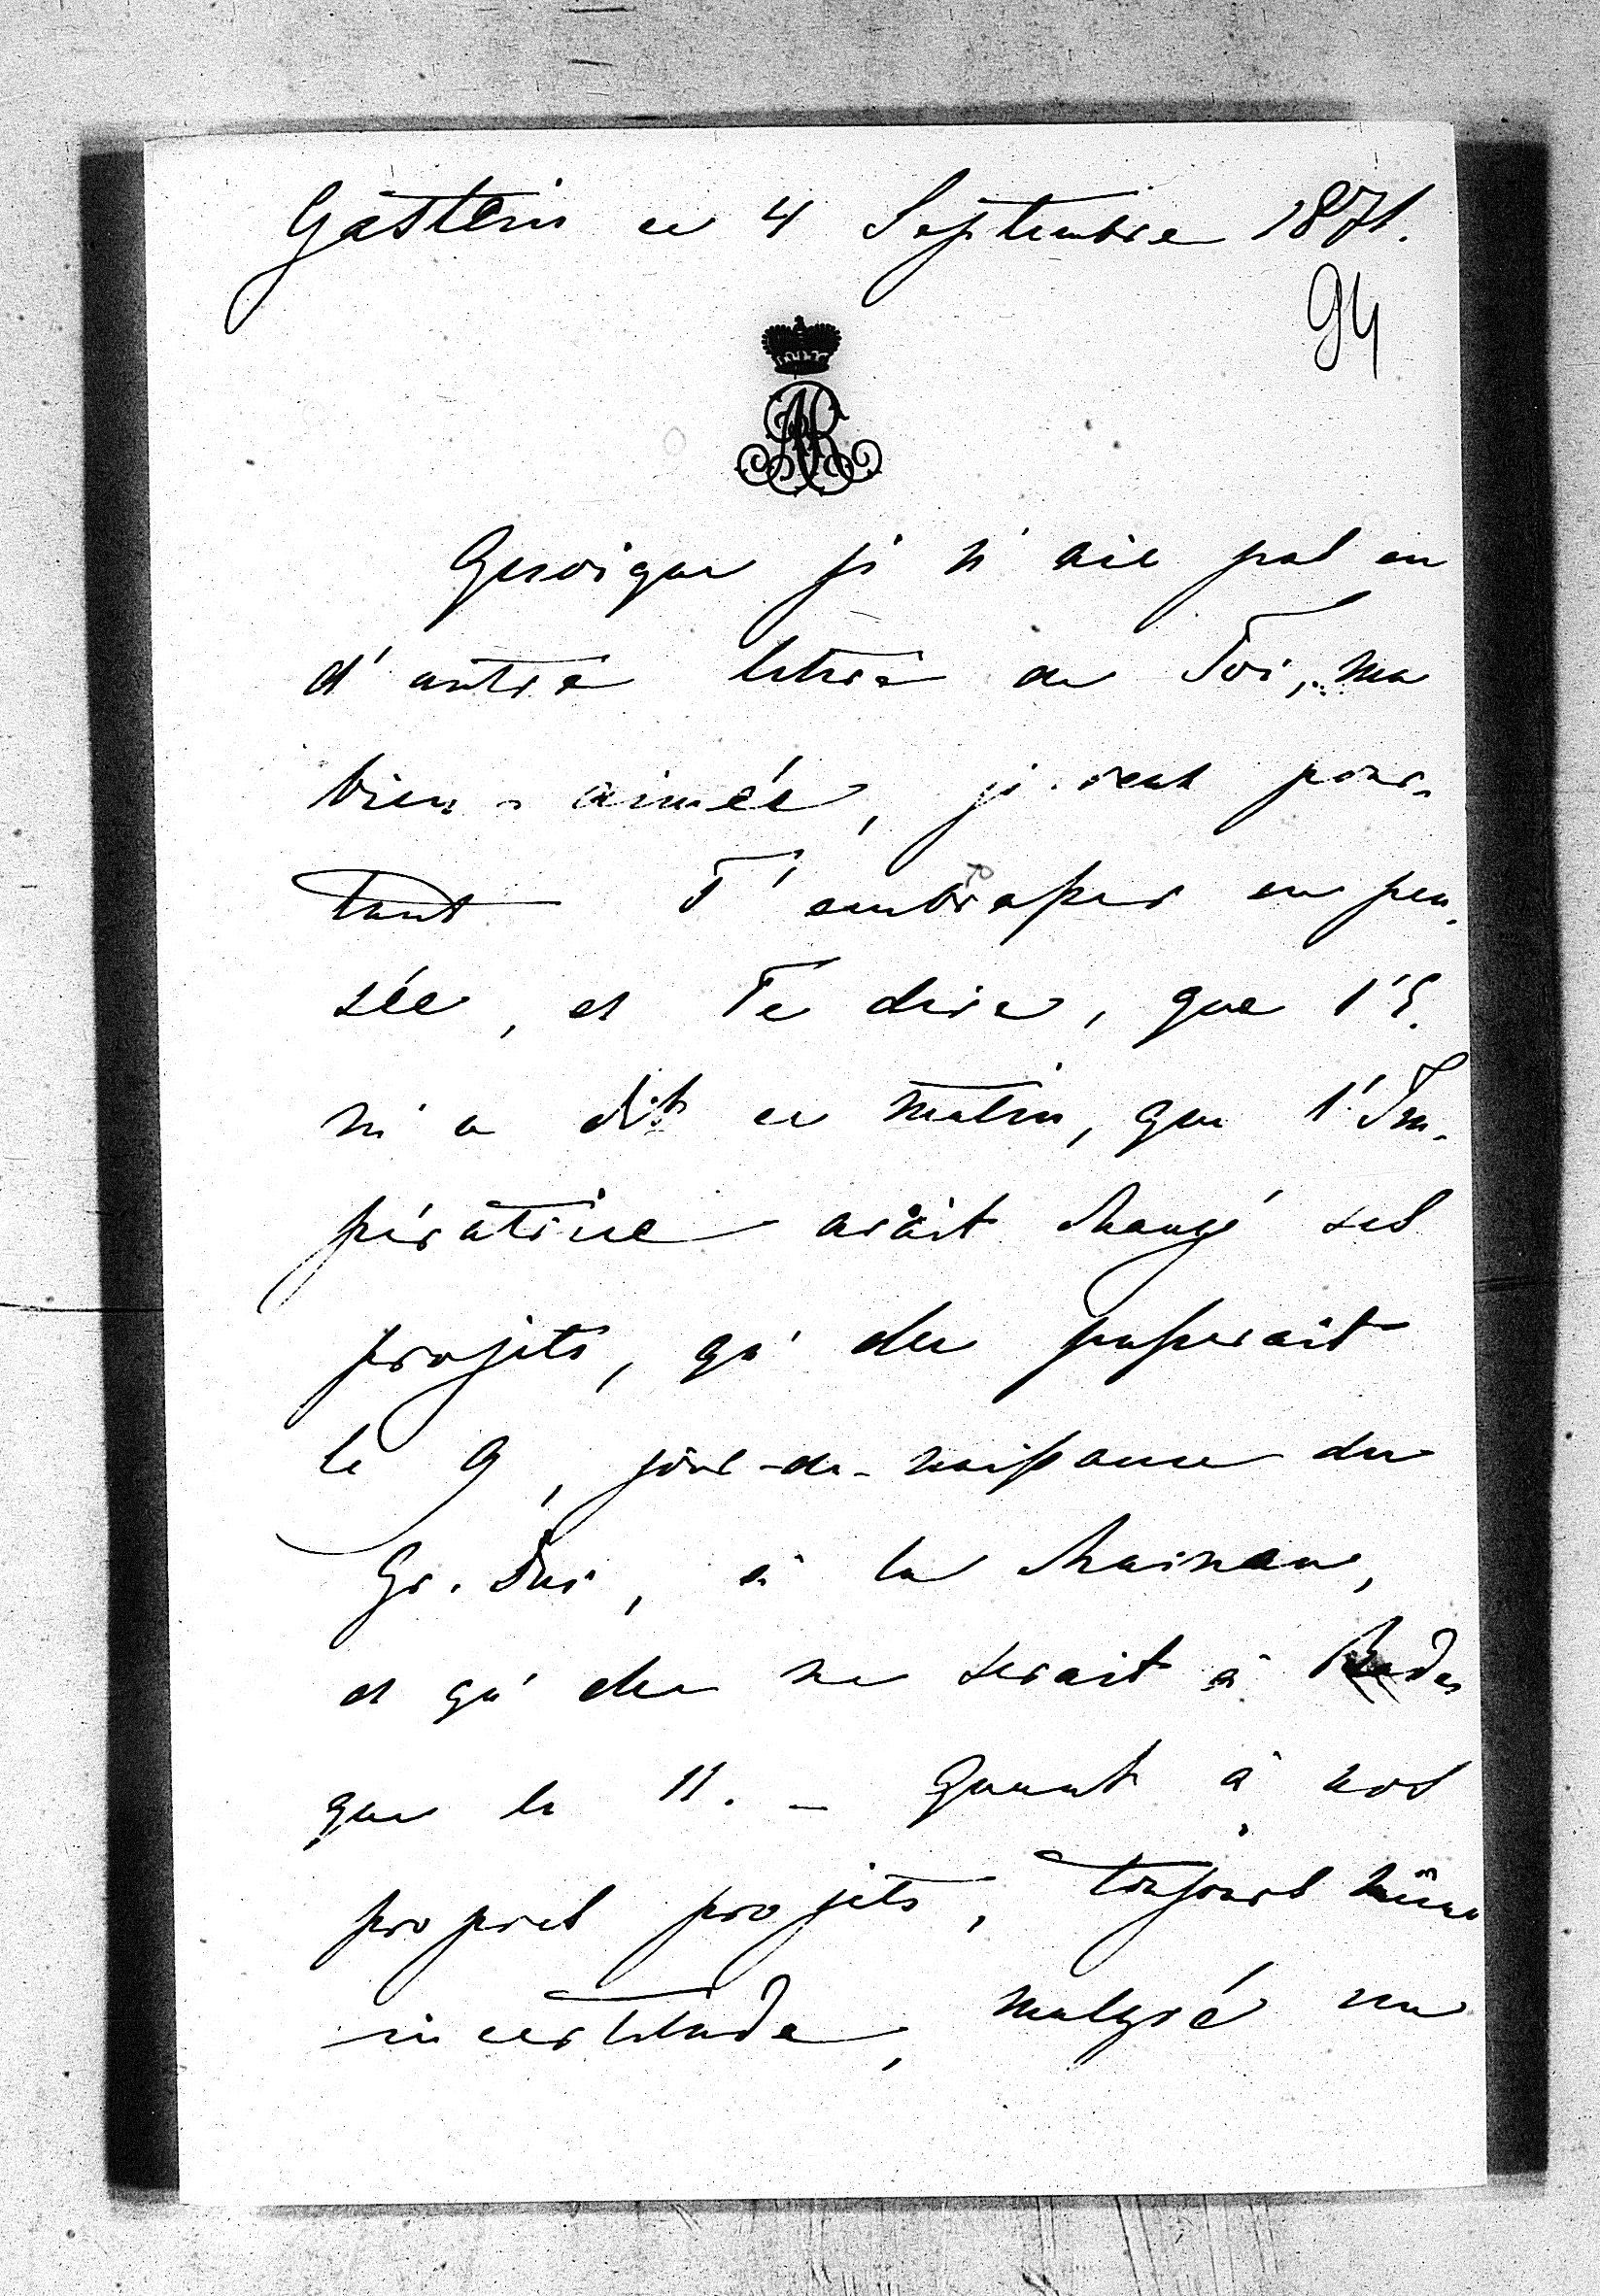 Gastein ce 4 Septembre 1871.
94
AR
Quoique je n'aie pas eu
d'autre lettre de Toi, ma
bien-aimée, je veux pour-
tant T'embrasser en pen-
sée, et Te dire, que l'E.
m'a dit ce matin, que l'Im-
pératrice avait changé ses
projets, qu'elle passerait
le 9, jour-de-naissance du
Gr. Duc, à la Mainau,
et qu'elle ne serait à Bade
que le 11. – Quant à nos
propres projets, toujours même
incertitude, malgré un